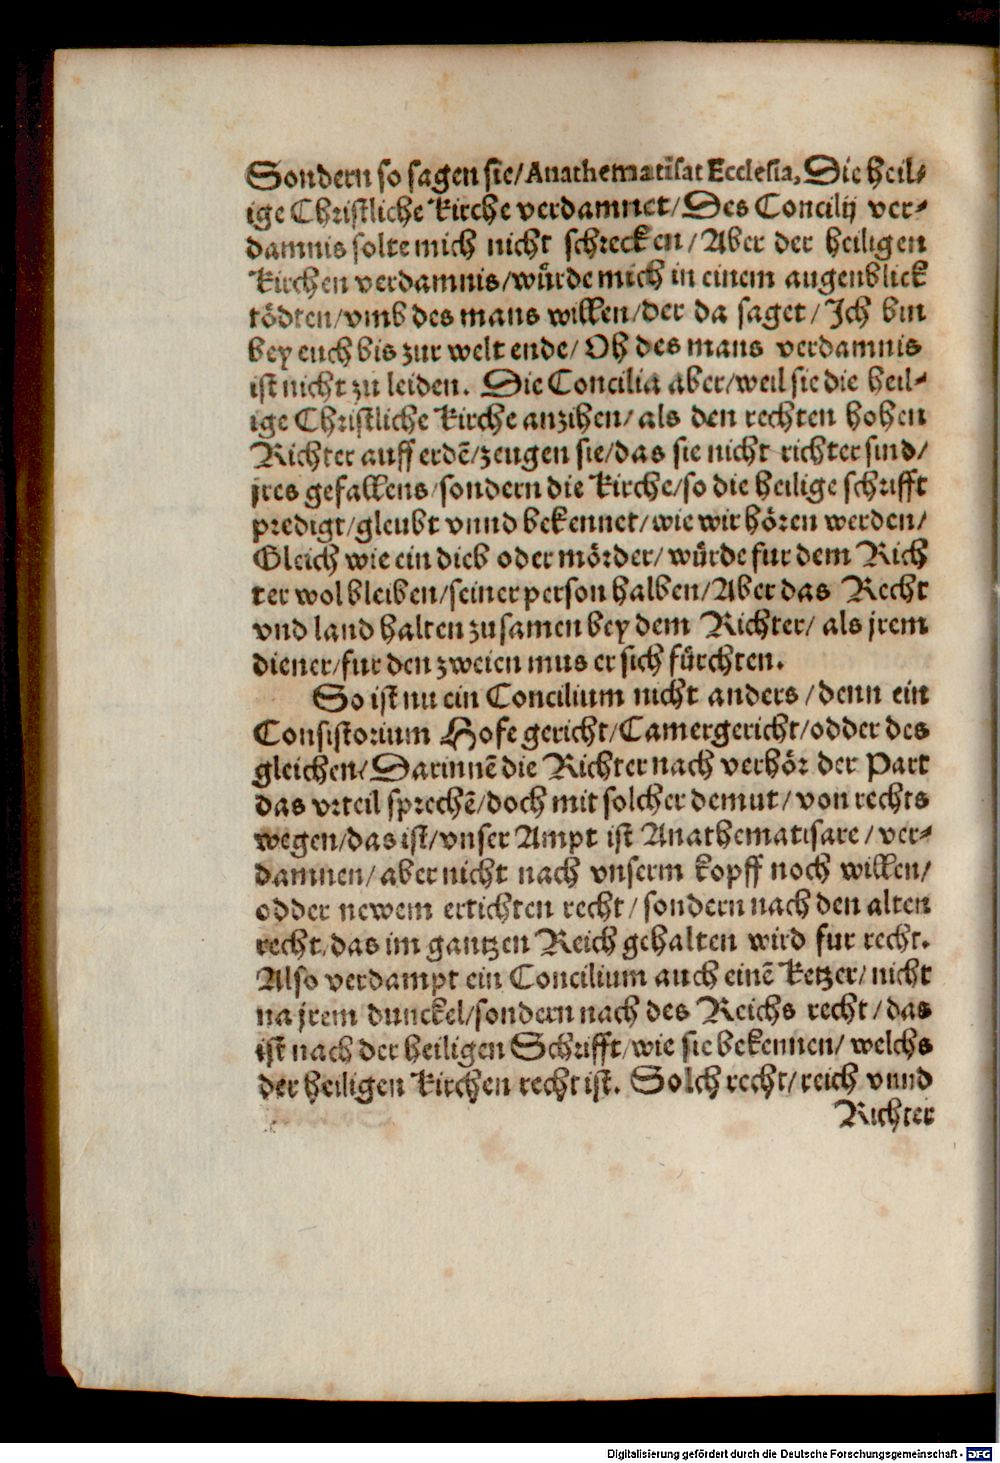 Sondern so sagen sie/ Anathematisat Ecclesia, Die heil⸗
ige Christliche Kirche verdamnet/ Des Concilij ver⸗
damnis solte mich nicht schrecken/ Aber der heiligen
Kirchen verdamnis/ würde mich in einem augenblick
tödten/ vmb des mans willen/ der da saget/ Ich bin
bey euch bis zur welt ende/ Oh des mans verdamnis
ist nicht zu leiden. Die Concilia aber/ weil sie die heil⸗
ige Christliche Kirche anzihen/ als den rechten hohen
Richter auff erdē/ zeugen sie/ das sie nicht richter sind/
jres gefallens/ sondern die Kirche/ so die heilige schrifft
predigt/ gleubt vnnd bekennet/ wie wir hören werden/
Gleich wie ein dieb oder mörder/ würde fur dem Rich
ter wol bleiben/ seiner person halben/ Aber das Recht
vnd land halten zusamen bey dem Richter/ als jrem
diener/ fur den zweien mus er sich fürchten.
So ist nu ein Concilium nicht anders/ denn ein
Consistorium Hofe gericht/ Camergericht/ odder des
gleichen/ Darinnē die Richter nach verhör der Part
das vrteil sprechē/ doch mit solcher demut/ von rechts
wegen/ das ist/ vnser Ampt ist Anathematisare/ ver⸗
damnen/ aber nicht nach vnserm kopff noch willen/
odder newem ertichten recht/ sondern nach den alten
recht/ das im gantzen Reich gehalten wird fur recht.
Also verdampt ein Concilium auch einē Ketzer/ nicht
na jrem dunckel/ sondern nach des Reichs recht/ das
ist nach der heiligen Schrifft/ wie sie bekennen/ welchs
der heiligen Kirchen recht ist. Solch recht/ reich vnnd
Richter
Digitalisierung gefördert durch die Deutsche Forschungsgemeinschaft - DFG